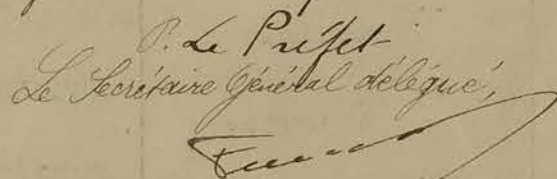 P. Le Préfet
Le Secrétaire Général délégué,